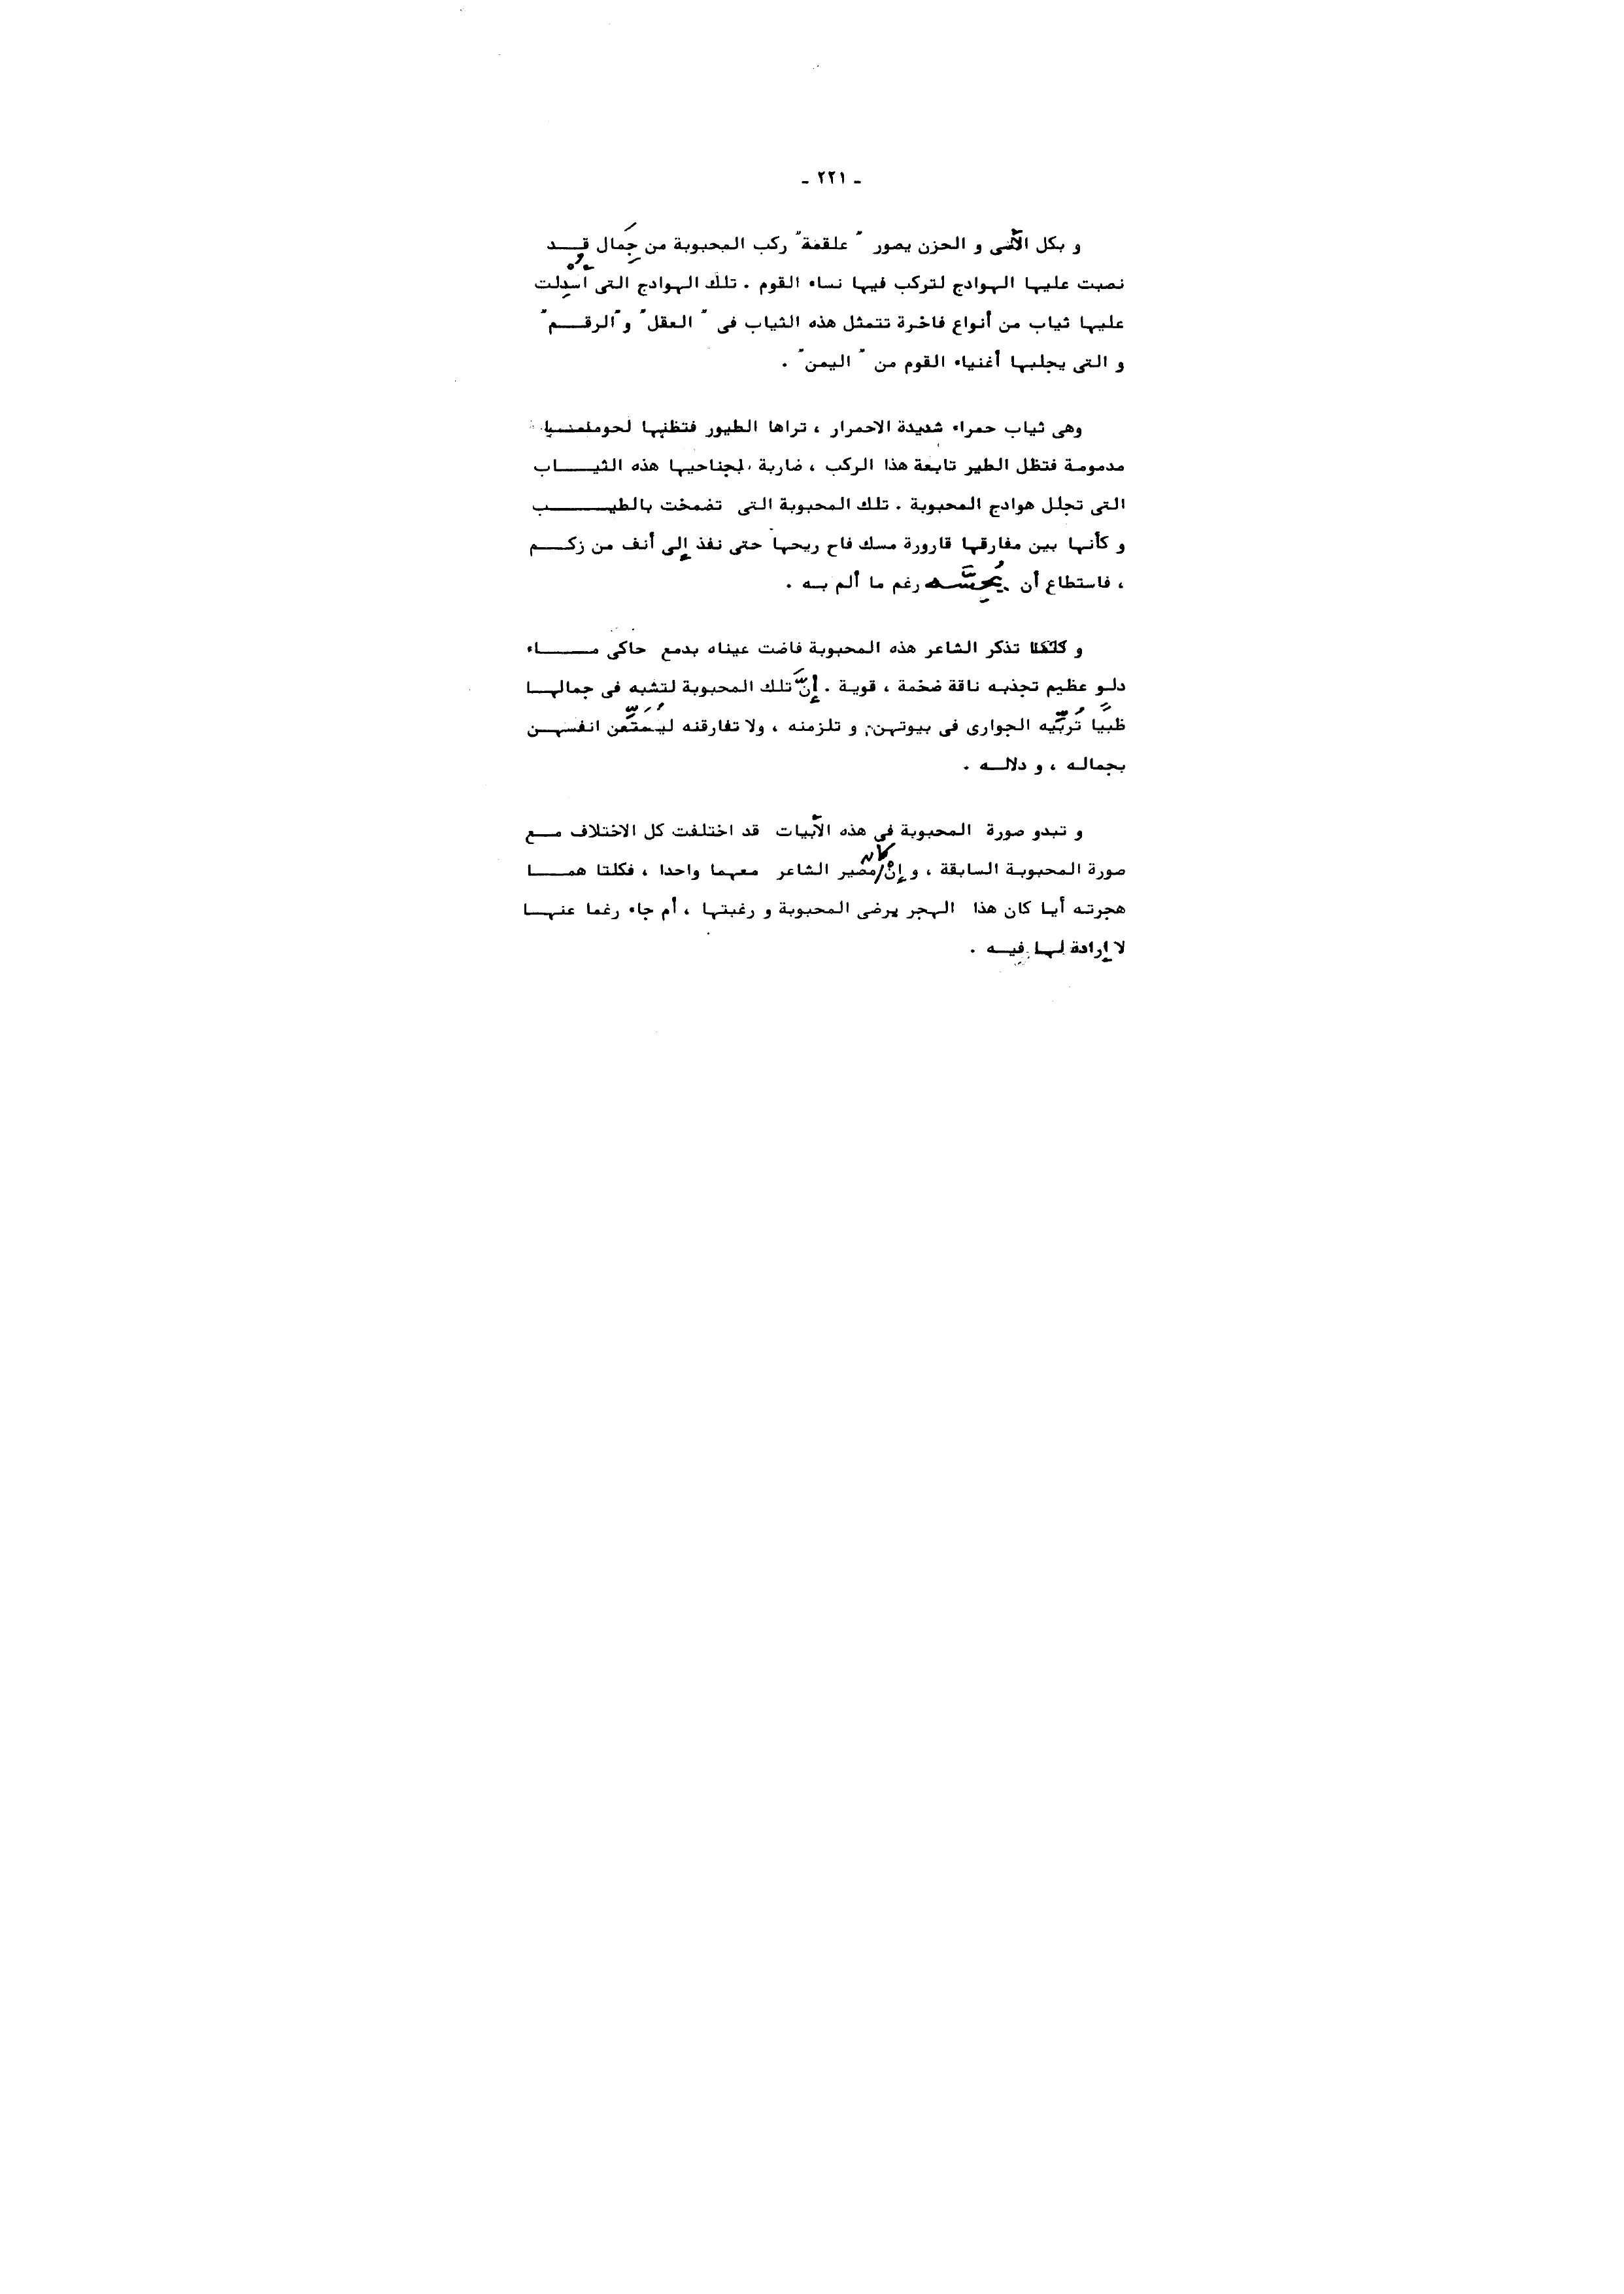 - ٢٢١ -
و بكل الأسى و الحزن يصور " علقمة" ركب المحبوبة من جَِمال قد
نصبت عليها الهوادج لتركب فيها نساء القوم . تلك الهوادج التى أُسْدِلت
عليها ثياب من أنواع فاخرة تتمثل هذه الثياب فى " العقل" و"الرقم"
و التى يجلبها أغنياء القوم من " اليمن" .
وهى ثياب حمراء شديدة الاحمرار ، تراها الطيور فتظنها لحوما
مدمومة فتظل الطير تابعة هذا الركب ، ضاربة بجناحيها هذه الثياب
التى تجلل هوادج المحبوبة . تلك المحبوبة التى تضمخت بالطيب
و كأنها بين مفارقها قارورة مسك فاح ريحها حتى نفذ إلى أنف من زكم
، فاستطاع أن يُحِسَّه رغم ما ألم به .
و كلما تذكر الشاعر هذه المحبوبة فاضت عيناه بدمع حاكى ماء
دلو عظيم تجذبه ناقة ضخمة ، قوية . إنَّ تلك المحبوبة لتشبه فى جمالها
ظبيًا تُربِّيه الجوارى فى بيوتهن و تلزمنه ، ولا تفارقنه ليُمَتِّعن انفسهن
بجماله ، و دلاله .
و تبدو صورة المحبوبة في هذه الأبيات قد اختلفت كل الاختلاف مع
صورة المحبوبة السابقة ، و إنْ كان مصير الشاعر معهما واحدا ، فكلتا هما
هجرته أيا كان هذا الهجر برضى المحبوبة و رغبتها ، أم جاء رغما عنها
لا إرادة لها فيه .